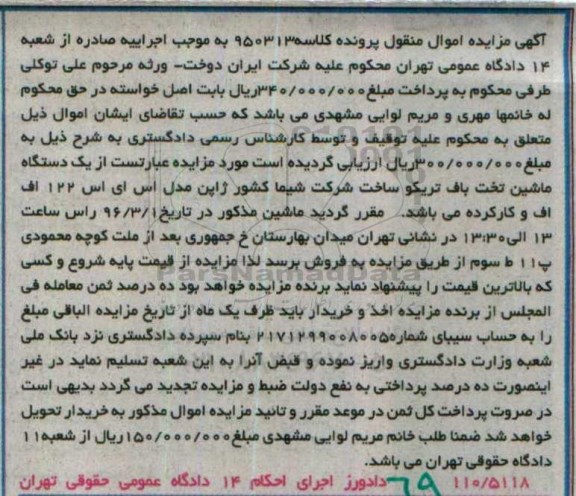 آگهی مزایده اموال منقول پرونده کلاسه۹۵۰۳۱۳ به موجب اجراییه صادره از شعبه
۱۴ دادگاه عمومی تهران محکوم علیه شرکت ایران دوخت- ورثه مرحوم علی توکلی
طرفی محکوم به پرداخت مبلغ۳۴۰/۰۰۰/۰۰۰ریال بابت اصل خواسته در حق محکوم
له خانمها مهری و مریم لوایی مشهدی می باشد که حسب تقاضای ایشان اموال ذیل
متعلق به محکوم علیه توقیف و توسط کارشناس رسمی دادگستری به شرح ذیل به
مبلغ۳۰۰/۰۰۰/۰۰۰ریال ارزیابی گردیده است مورد مزایده عبارتست از یک دستگاه
ماشین تخت باف تریکو ساخت شرکت شیما کشور ژاپن مدل اس ای اس ۱۲۲ اف
اف و کارکرده می باشد. مقرر گردید ماشین مذکور در تاریخ۹۶/۳/۱ راس ساعت
۱۳ الی۱۳:۳۰ در نشانی تهران میدان بهارستان خ جمهوری بعد از ملت کوچه محمودی
پ۱۱ ط سوم از طریق مزایده به فروش برسد لذا مزایده از قیمت پایه شروع و کسی
که بالاترین قیمت را پیشنهاد نماید برنده مزایده خواهد بود ده درصد ثمن معامله فی
المجلس از برنده مزایده اخذ و خریدار باید ظرف یک ماه از تاریخ مزایده الباقی مبلغ
را به حساب سیبای شماره۲۱۷۱۲۹۹۰۰۸۰۰۵ بنام سپرده دادگستری نزد بانک ملی
شعبه وزارت دادگستری واریز نموده و قبض آنرا به این شعبه تسلیم نماید در غیر
اینصورت ده درصد پرداختی به نفع دولت ضبط و مزایده تجدید می گردد بدیهی است
در صروت پرداخت کل ثمن در موعد مقرر و تائید مزایده اموال مذکور به خریدار تحویل
خواهد شد ضمنا طلب خانم مریم لوایی مشهدی مبلغ۱۵۰/۰۰۰/۰۰۰ریال از شعبه۱۱
دادگاه حقوقی تهران می باشد.
۱۱۰/۵۱۱۸ ۶۹ دادورز اجرای احکام ۱۴ دادگاه عمومی حقوقی تهران
ParsNamadData